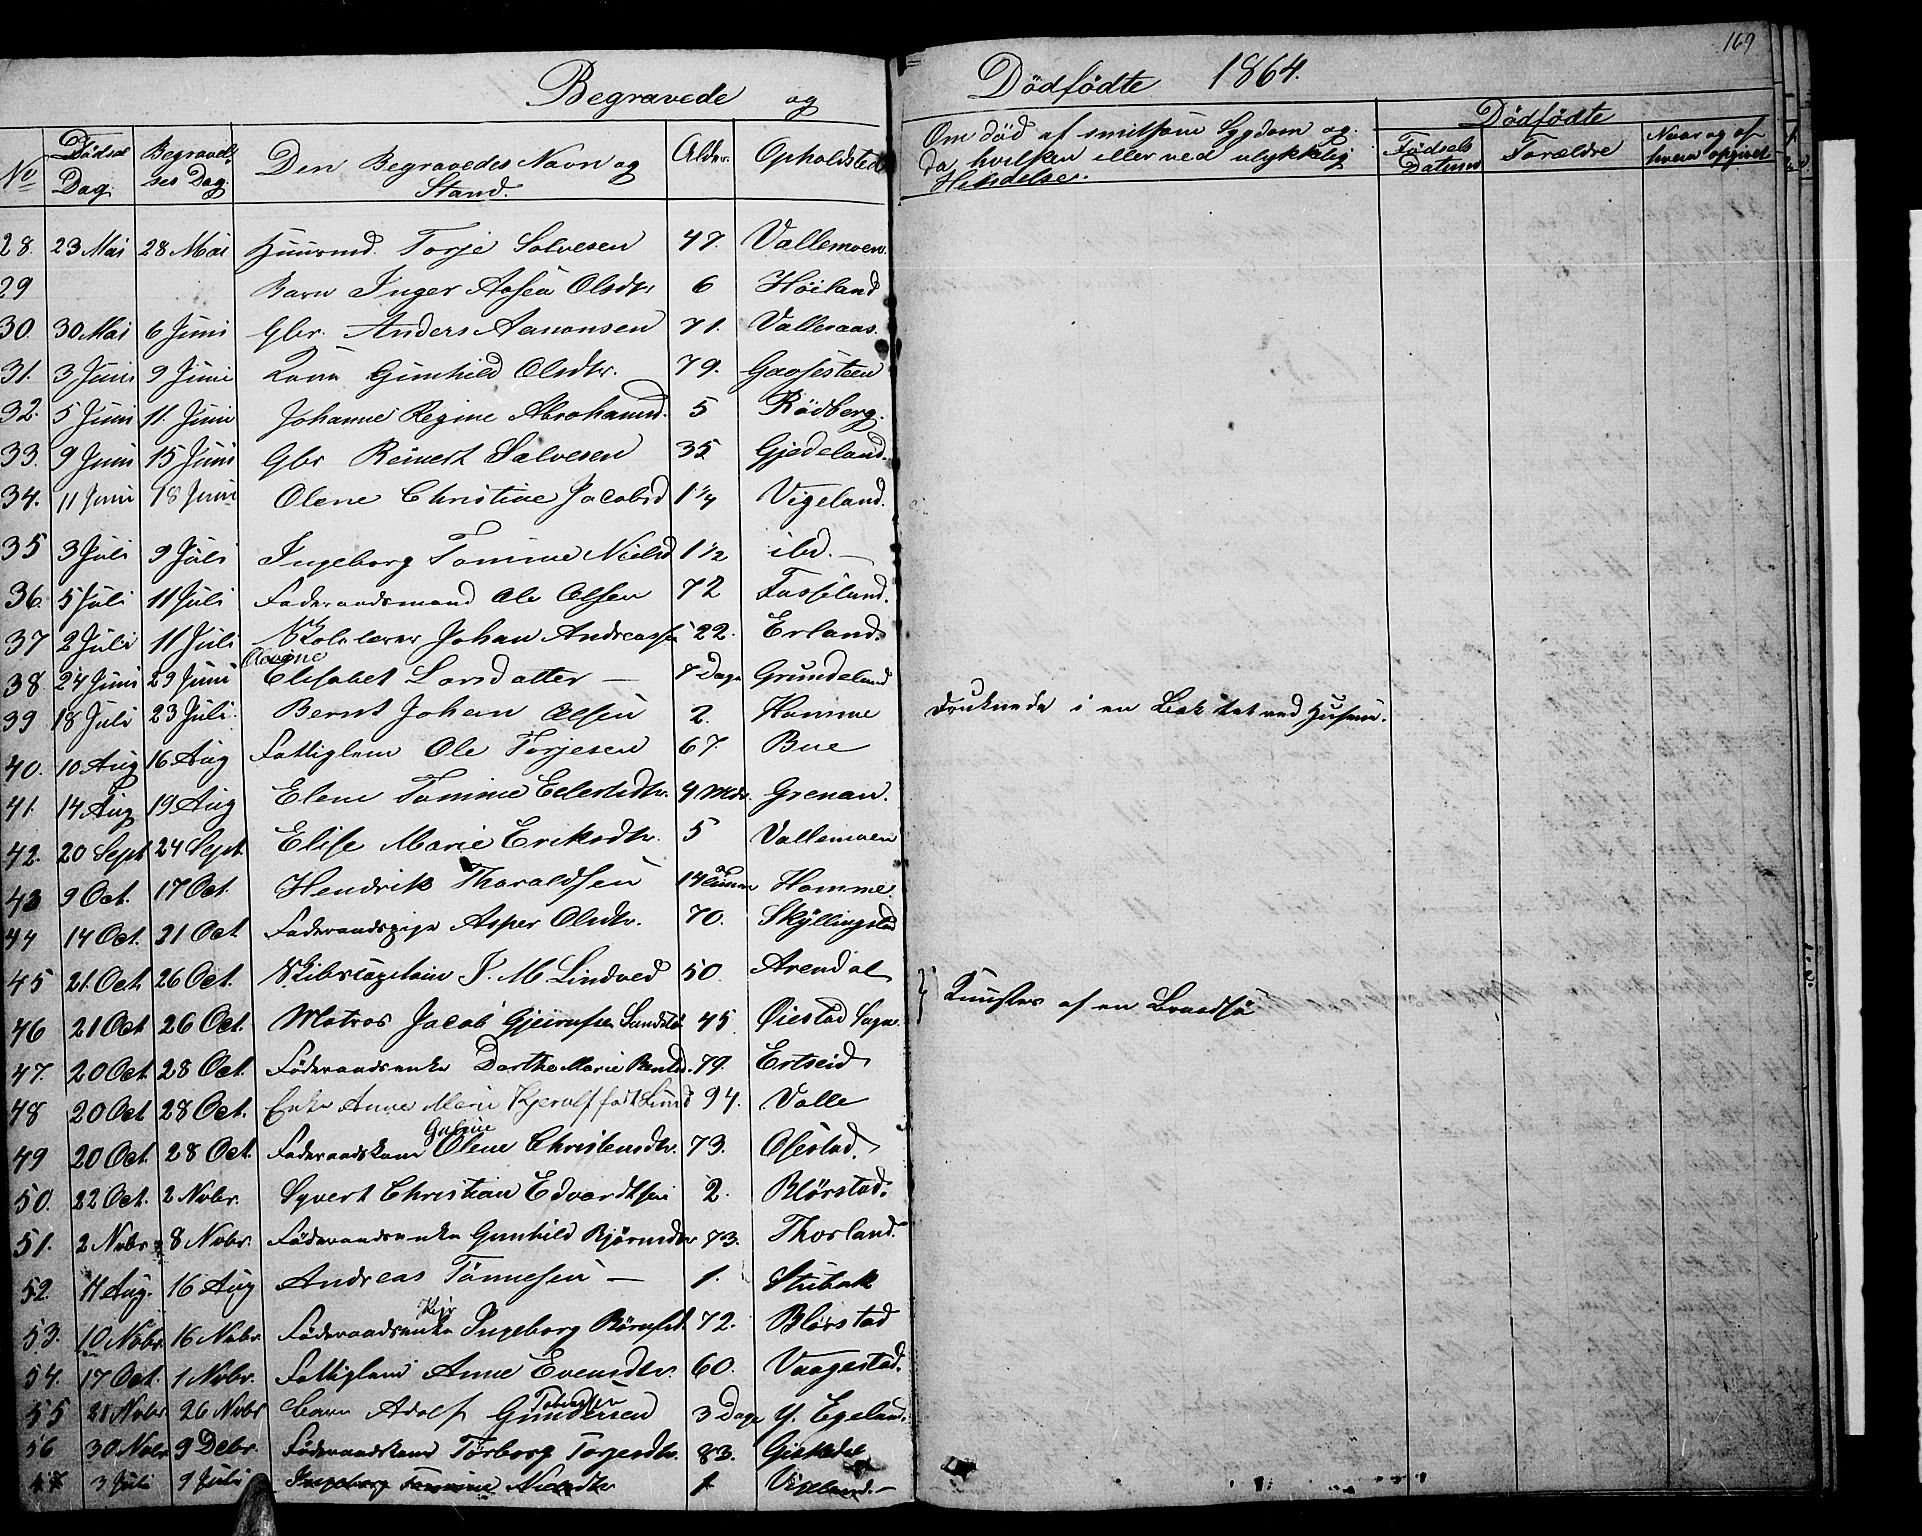 Begravede og
Dödfödte 1864.
169
No Dödsd Dag. Begravelses Dag. Den Begravedes Navn og Stand. Alder. Opholdsted
Om död af smitsom Sygdom og da hvilken eller ved ulykkelig Hendelse.
Dödfödte
Födsels Datum Forældre Naar og af hvem opgivet
28. 23 Mai 28 Mai Huusmd. Torje Solvesen 47. Vallemoen.
29 Barn Inger Aasen Olsdtr 6 Höiland
30. 30 Mai 6 Juni Gbr. Anders Aanonsen 71. Valleraas.
31. 3 Juni 9 Juni Kone Gunhild Olsdtr. 79. Gaasesteen
32. 5 Juni 11. Juni Johanne Regine Abrahamsd. 5 Rödberg.
33. 9 Juni 15 Juni Gbr Reinert Salvesen 35 Gjedeland.
34. 11 Juni 18 Juni Olene Christine Jacobsd 1 1/4 Vigeland.
35 3 Juli 9 Juli Ingeborg Tomine Nielsd 1 1/2 ibd. —
36. 5 Juli 11 Juli Föderaadsmand Ole Olsen 72 Fasseland.
37 2 Juli 11 Juli Skolelærer Johan Andreassen 22. Erland.
38 24 Juni 29 Juni Elisabet Larsdatter — 8 Dage Grundeland
39 18 Juli 23 Juli. Bernt Johan Olsen 2. Homme
Druknede i en Bæk tæt ved Husene.
40. 10 Aug 16 Aug Fattiglem Ole Torjesen 67. Bue
41. 14 Aug 19 Aug Elene Tomine Eilertsdtr. 4 Mdr. Grenan.
42. 20 Sept 24 Sept. Elise Marie Eriksdtr. 5 Vallemoen
43 9 Oct. 17 Oct. Hendrik Tharaldsen 14 Homme.
44 14 Oct. 21 Oct. Föderaadspige Asper Olsdtr. 70. Skyllingstad
45 21. Oct. 26 Oct. Skibscaptain J. M Lindved 50. Arendal
46 21 Oct 26 Oct. Matros Jacob Gjeirulfsen Sandstö 45 Öiestad Sogn.
} af en Braadsö
47. 20 Oct. 28 Oct. Föderaadsenke Dorthe Marie Bentsd. 79. Ertseid
48 20 Oct 28 Oct. Enke Anne Marie Kjerulf födt Lund 94. Valle
Guline
49 20 Oct. 28 Oct. Föderaadskone Olene Christensdtr. 73. Ofestad.
50. 22 Oct. 2 Nobr. Syvert Christian Edvardsen 2. Blörstad.
51. 2 Nobr 8 Nobr. Föderaadsenke Gunhild Björnsdtr 73. Thorland.
52. 11 Aug. 16 Aug Andreas Tönnesen — 1. Stubak
53. 10 Nobr. 16 Nobr. Föderaadsenke Ingeborg 72. Blörstad
54. 17 Oct. 1 Nobr. Fattiglem Anne Evensdtr. 60. Vaagestad.
55 21 Nobr 26 Nobr Barn Adolf Gundersen 3 Dage Y. Egeland.
56 30 Nobr 9 Debr. Föderaadskone Torborg Torjesdtr. 83. Gisledal
3 Juli 9 Juli Ingeborg Tomine Nielsdtr 1 Vigeland. —